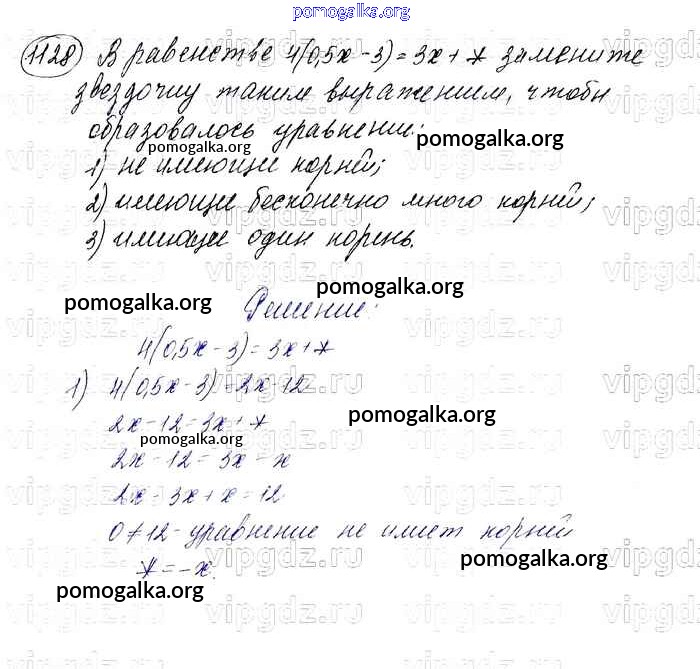 pomogalka.org
1128 В равенстве 4(0,5x-3)=3x+* замените
звездочку таким выражением, чтобы
образовалось уравнение:
pomogalka.org
1) не имеющие корней;
2) имеющие бесконечно много корней;
3) имеющие один корень.
pomogalka.org
pomogalka.org
Решение:
4(0,5x-3)=3x+*
1) 4(0,5x-3)=2x-12
pomogalka.org
2x-12=3x+*
pomogalka.org
2x-12=3x-x
2x-3x+x=12
0≠12-уравнение не имеет корней
pomogalka.org
*=-x.
pomogalka.org
vipgdz.ru